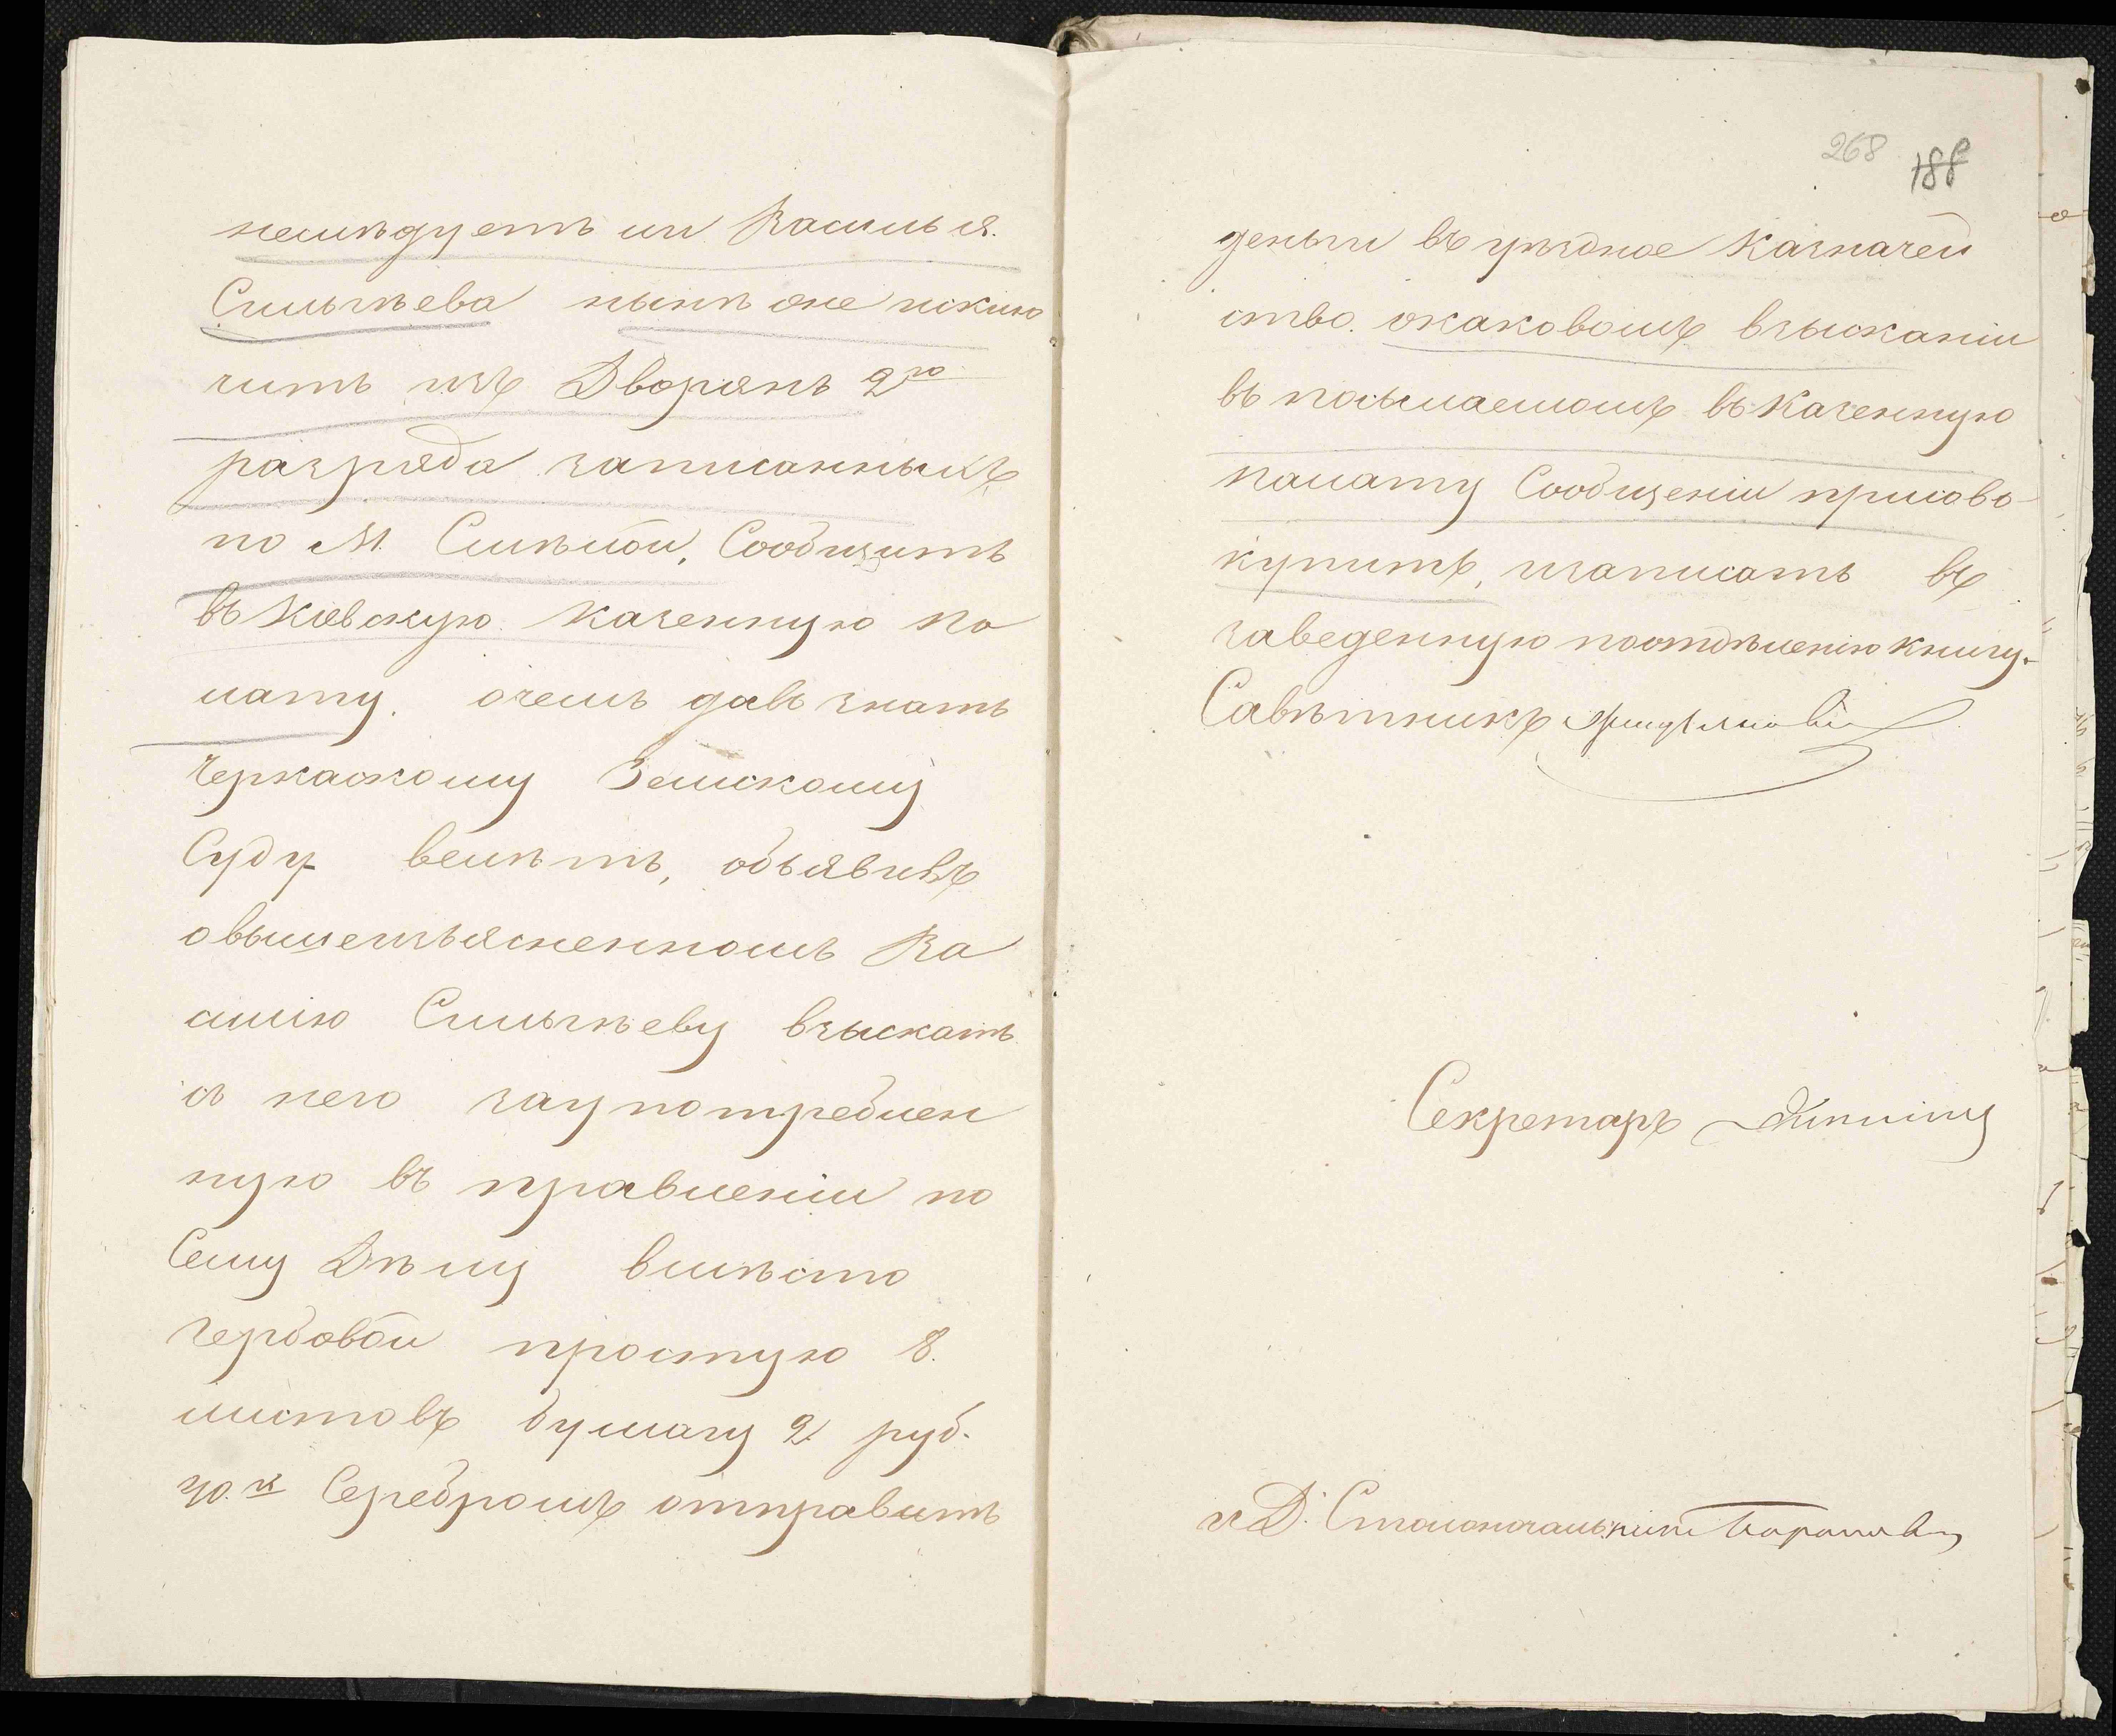 неслѣдуетъ ли Василья
Смильгѣева нынѣ же исклю
чить изъ Дворянъ 2го
разряда записанныхъ
по М. Смѣлой, Сообщить
въ Кіевскую Казенную Па
лату. очемъ давъ знать
Черкаскому Земскому
Суду велѣть, объявивъ
овышеизъясненномъ Ва
силію Смильгѣеву взыскать
съ него заупотреблен
ную въ правленіи по
Сему Дѣлу вмѣсто
гербовой простую 8.
листовъ бумагу 2 руб.
40.к Серебромъ отправить
268 188
деньги въ уѣздное Казначей
ство. окаковомъ взысканіи
въ посылаемомъ въ Казенную
палату Сообщеніи присово-
купить, изаписать въ
заведенную поотдѣленію книгу.
Савѣтникъ
Секретарь
И.Д. Столоначальника